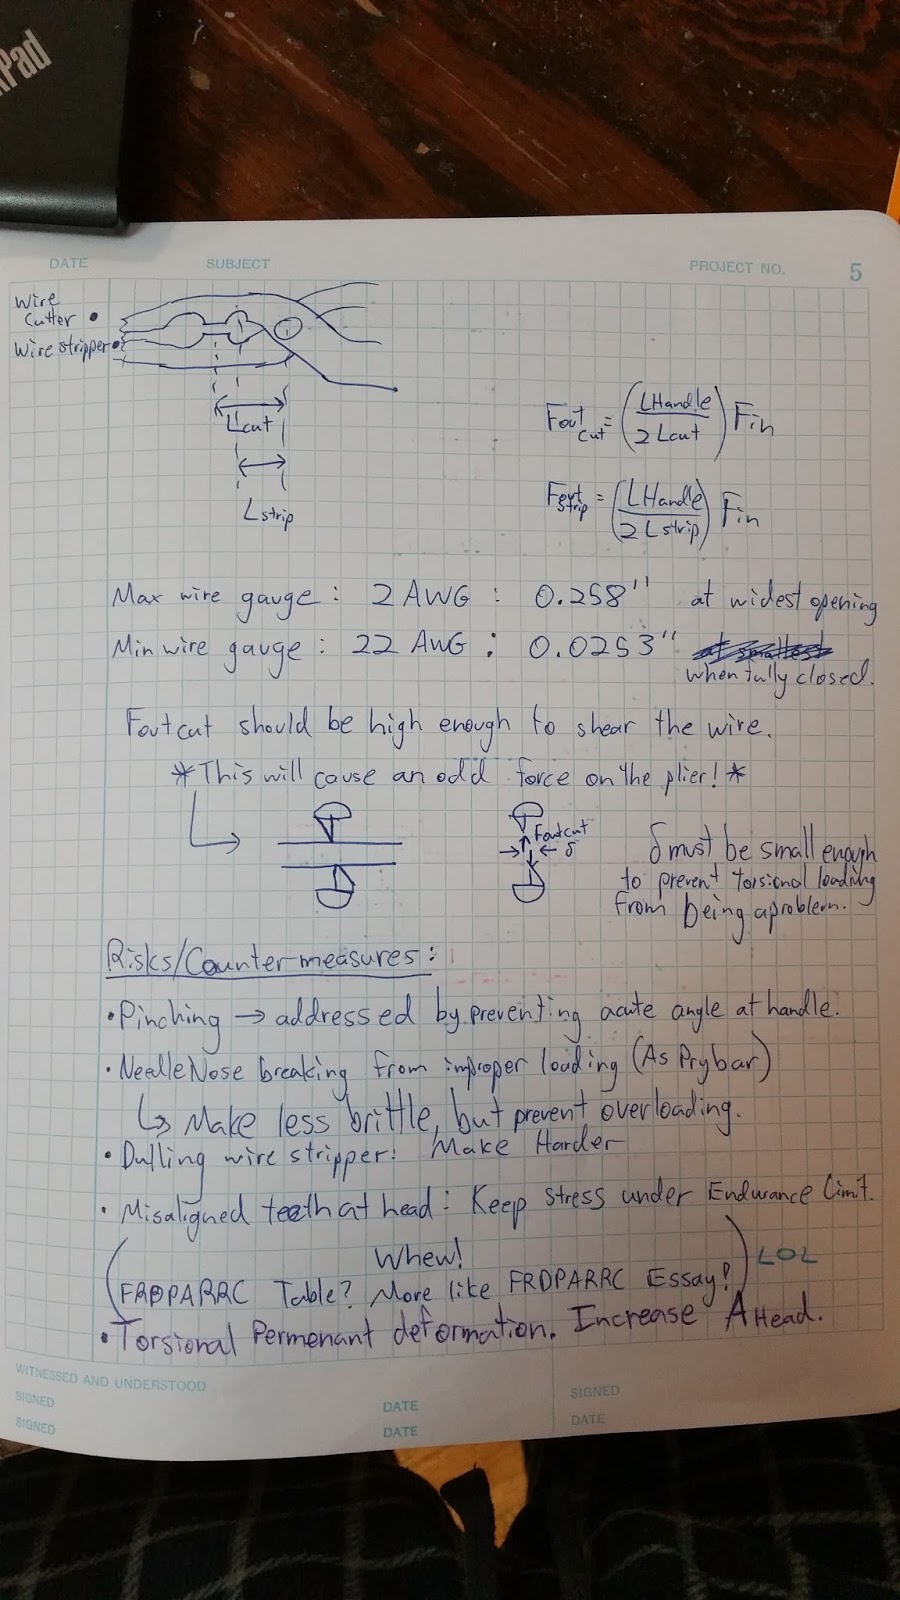 Pad
DATE SUBJECT PROJECT NO. 5
Wire
Cutter •
Wire stripper •
Lcut
Lstrip
Fout cut = (LHandle / 2 Lcut) Fin
Fout strip = (LHandle / 2 Lstrip) Fin
Max wire gauge : 2 AWG : 0.258" at widest opening
Min wire gauge : 22 AWG : 0.0253"
when fully closed.
Foutcut should be high enough to shear the wire.
*This will cause an odd force on the plier! *
Foutcut
δ
δ must be small enough
to prevent torsional loading
from being a problem.
Risks/Counter measures :
• Pinching → addressed by preventing acute angle at handle.
• NeedleNose breaking from improper loading (As Prybar)
↳ Make less brittle, but prevent overloading.
• Dulling wire stripper: Make Harder
• Misaligned teeth at head : Keep stress under Endurance limit.
(Whew!
FRDPARRC Table? More like FRDPARRC Essay!) LOL
• Torsional Permenant deformation. Increase AHead.
WITNESSED AND UNDERSTOOD
SIGNED DATE SIGNED
SIGNED DATE DATE